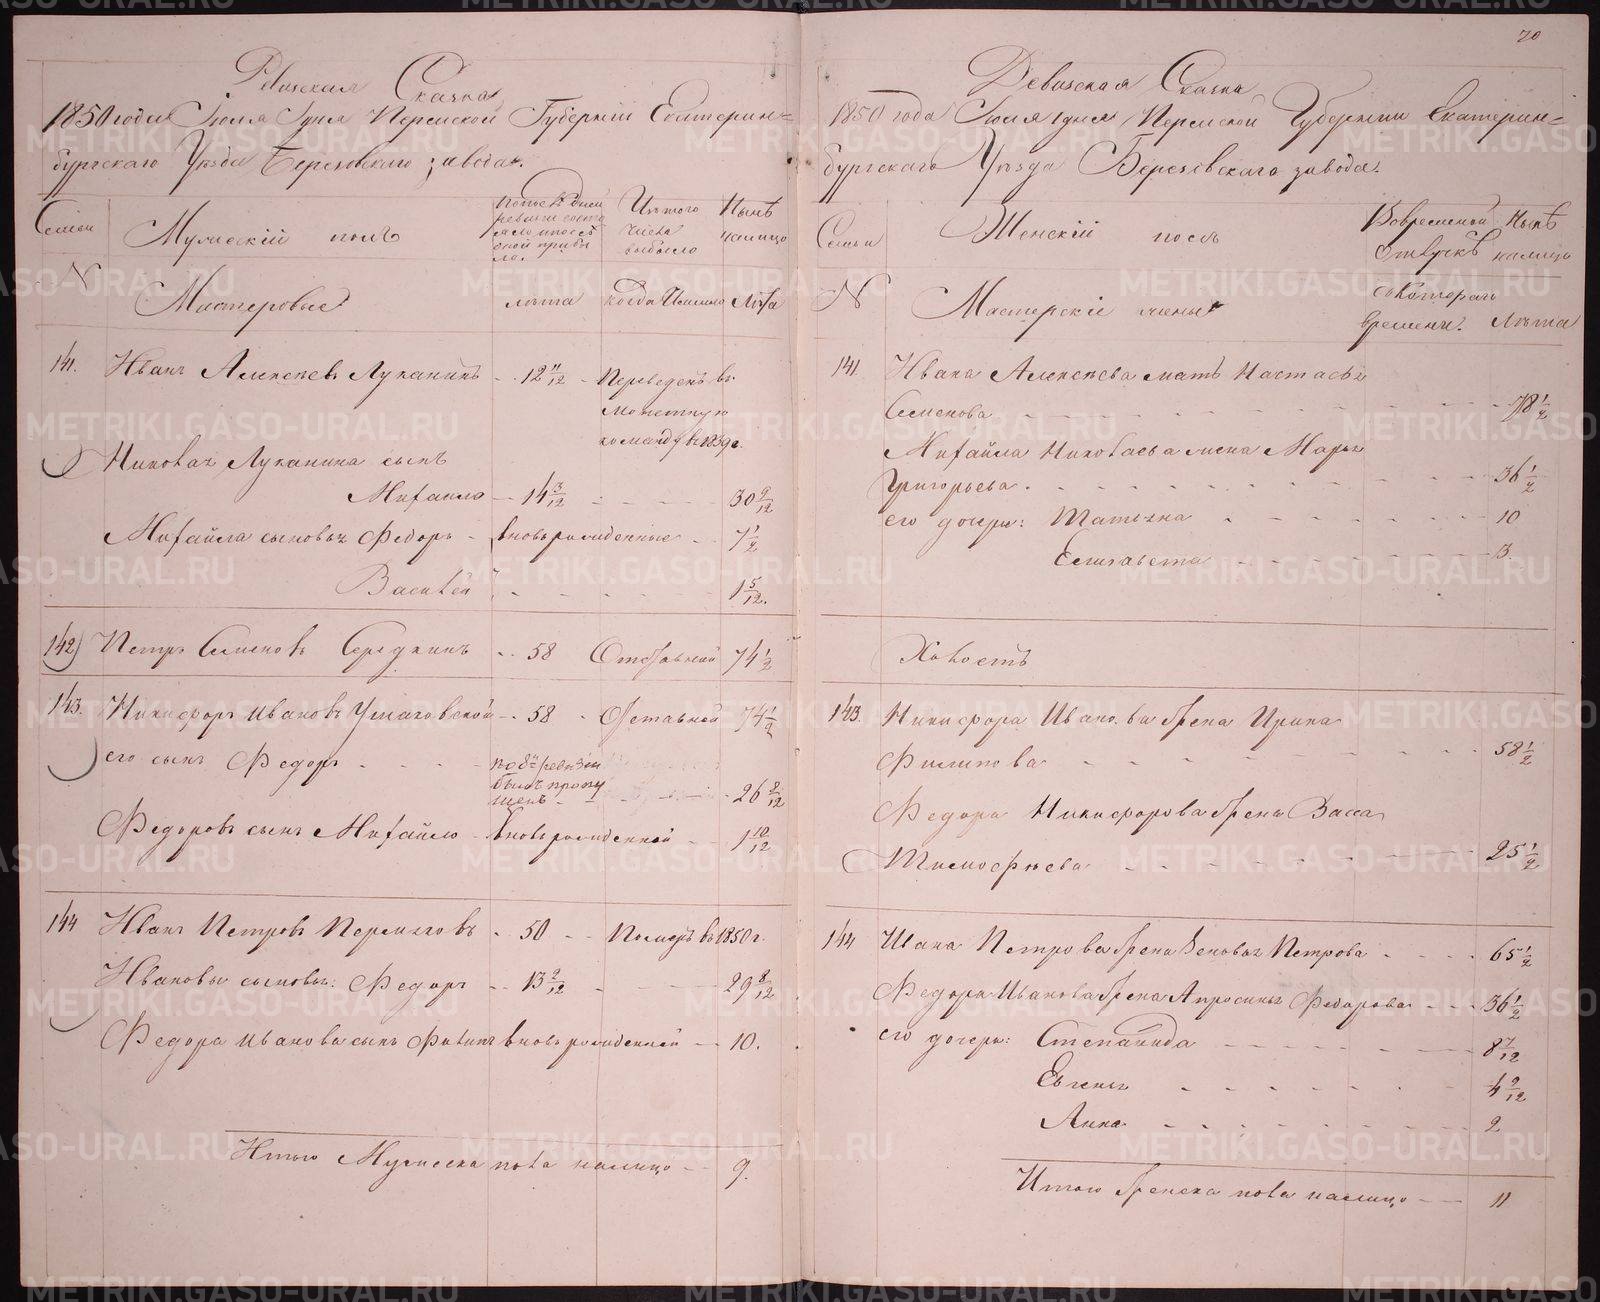 70
Ревизская Сказка
1850 года Июля 1 дня Пермской Губернии Екатерин=
бургскаго Уѣзда Березовскаго завода.
Семьи
№
Мужескій полъ
Мастеровые
лѣта
Изъ того числа выбыло
когда Именно
Нынѣ налицо
Лѣта
141. Иванъ Алексѣевъ Луканинъ - 12 11/12 - Переведенъ въ
Монетную
команду въ 1839 г.
Луканина сынъ
Михайло - 14 3/12 - - - 30 9/12
Михайла сыновья Федоръ - вновь рожденные - 7 1/2
Василей - - - - 1 5/12.
142) Петръ Семеновъ Середкинъ - 58 Отставной 74 1/2
143. Никифоръ Ивановъ - 58 - Отставной 74 1/2
его сынъ Федоръ - - - по 8й ревизіи
былъ пропу
щенъ - - - 26 8/12
Федоровъ сынъ Михайло - вновь рожденной - 1 10/12
144 Иванъ Петровъ Перминовъ - 50 - Померъ въ 1850 г.
Ивановы сыновья: Федоръ - 13 2/12 - - 29 8/12
Федора Иванова сынъ вновь рожденной - 10.
Итого Мужеска пола налицо - 9.
Ревизская Сказка
1850 года Июля 1 дня Пермской Губернии Екатерин=
бургскаго Уѣзда Березовскаго завода.
Семьи
№
Женскій полъ
Мастерскіе жены
Во временной
отлучкѣ
съ котораго
времени.
Нынѣ
налицо
Лѣта
141. Ивана Алексѣева мать Настасья
Семенова - - - 78 1/2
Михайла Николаева жена Марья
Григорьева - - - 36 1/2
его дочери: Татьяна - - - 10
Елизавета - - - 3.
Холостъ
143. Никифора Иванова жена Ирина
Филипова - - - 58 1/2
Федора Никифорова жена Васса
Тимофѣева - - - 25 1/2
144 Ивана Петрова жена Петрова - - - 65 1/2
Федора Иванова жена Апросинья Федорова - - - 36 1/2
его дочери: Степанида - - - 8 7/12
Евгенья - - - 4 9/12
Анна - - - 2
Итого женска пола налицо - - 11
METRIKI.GASO-URAL.RU